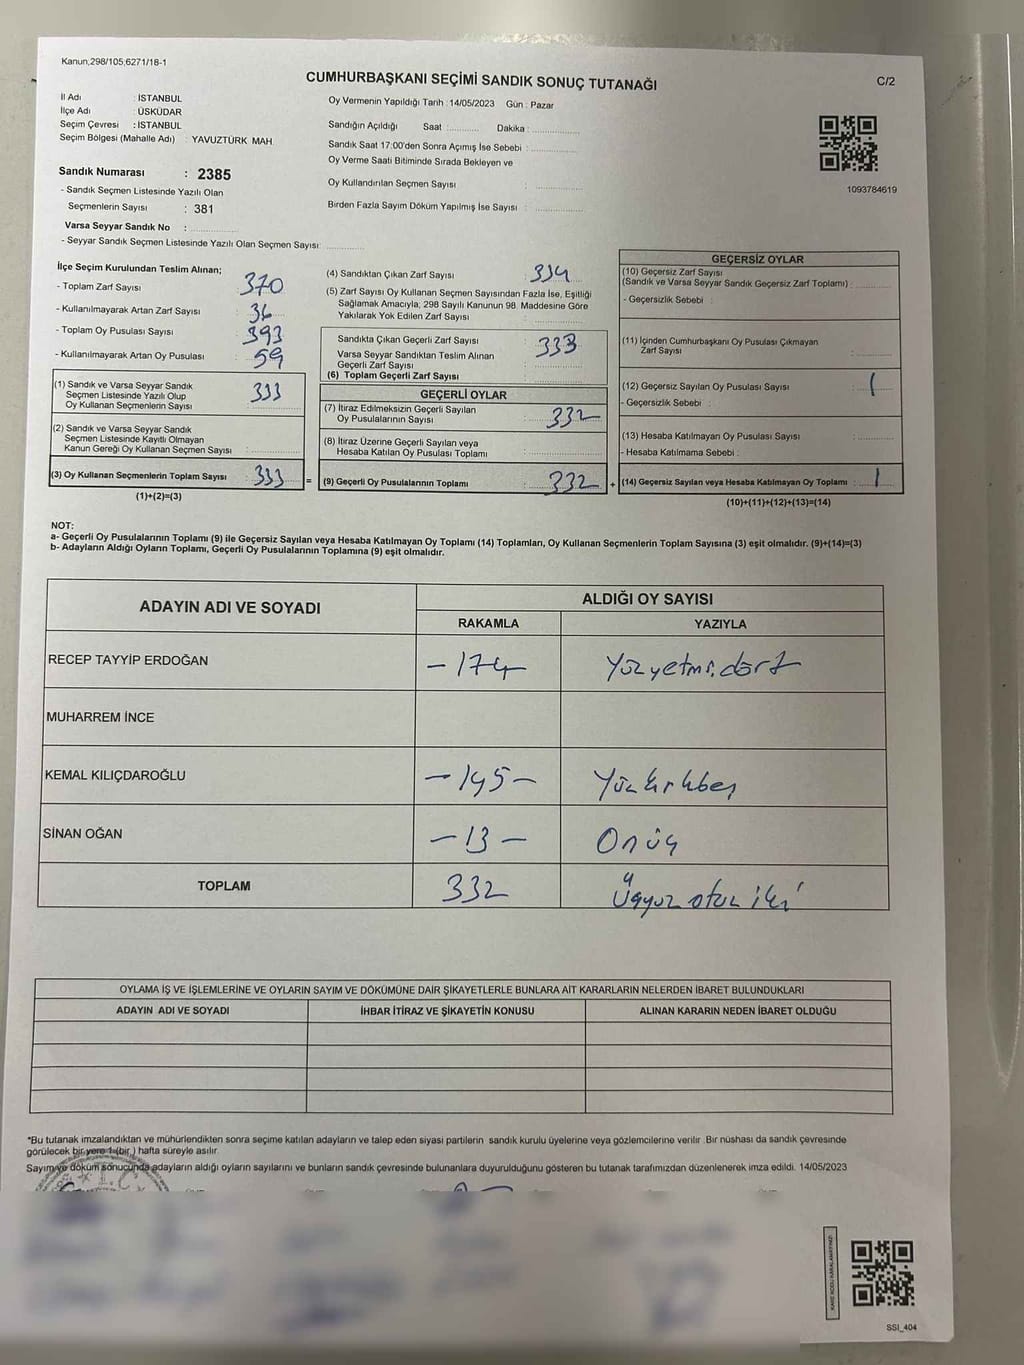 Kanun,298/105,6271/18-1
CUMHURBAŞKANI SEÇİMİ SANDIK SONUÇ TUTANAĞI
C/2
İl Adı : İSTANBUL
İlçe Adı : ÜSKÜDAR
Seçim Çevresi : İSTANBUL
Seçim Bölgesi (Mahalle Adı) : YAVUZTÜRK MAH
Sandık Numarası : 2385
- Sandık Seçmen Listesinde Yazılı Olan
Seçmenlerin Sayısı : 381
Varsa Seyyar Sandık No :
- Seyyar Sandık Seçmen Listesinde Yazılı Olan Seçmen Sayısı:
Oy Vermenin Yapıldığı Tarih : 14/05/2023 Gün : Pazar
Sandığın Açıldığı Saat : Dakika :
Sandık Saat 17:00'den Sonra Açımış İse Sebebi :
Oy Verme Saati Bitiminde Sırada Bekleyen ve
Oy Kullandırılan Seçmen Sayısı :
Birden Fazla Sayım Döküm Yapılmış İse Sayısı :
1093784619
İlçe Seçim Kurulundan Teslim Alınan;
- Toplam Zarf Sayısı : 370
- Kullanılmayarak Artan Zarf Sayısı : 36
- Toplam Oy Pusulası Sayısı : 393
- Kullanılmayarak Artan Oy Pusulası : 59
(1) Sandık ve Varsa Seyyar Sandık
Seçmen Listesinde Yazılı Olup
Oy Kullanan Seçmenlerin Sayısı : 333
(2) Sandık ve Varsa Seyyar Sandık
Seçmen Listesinde Kayıtlı Olmayan
Kanun Gereği Oy Kullanan Seçmen Sayısı :
(3) Oy Kullanan Seçmenlerin Toplam Sayısı : 333
(1)+(2)=(3)
=
(4) Sandıktan Çıkan Zarf Sayısı : 334
(5) Zarf Sayısı Oy Kullanan Seçmen Sayısından Fazla İse, Eşitliği
Sağlamak Amacıyla; 298 Sayılı Kanunun 98. Maddesine Göre
Yakılarak Yok Edilen Zarf Sayısı :
Sandıkta Çıkan Geçerli Zarf Sayısı : 333
Varsa Seyyar Sandıktan Teslim Alınan
Geçerli Zarf Sayısı :
(6) Toplam Geçerli Zarf Sayısı :
GEÇERLİ OYLAR
(7) İtiraz Edilmeksizin Geçerli Sayılan
Oy Pusulalarının Sayısı : 332
(8) İtiraz Üzerine Geçerli Sayılan veya
Hesaba Katılan Oy Pusulası Toplamı :
(9) Geçerli Oy Pusulalarının Toplamı : 332
+
GEÇERSİZ OYLAR
(10) Geçersiz Zarf Sayısı
(Sandık ve Varsa Seyyar Sandık Geçersiz Zarf Toplamı) :
- Geçersizlik Sebebi :
(11) İçinden Cumhurbaşkanı Oy Pusulası Çıkmayan
Zarf Sayısı :
(12) Geçersiz Sayılan Oy Pusulası Sayısı : 1
- Geçersizlik Sebebi :
(13) Hesaba Katılmayan Oy Pusulası Sayısı :
- Hesaba Katılmama Sebebi :
(14) Geçersiz Sayılan veya Hesaba Katılmayan Oy Toplamı : 1
(10)+(11)+(12)+(13)=(14)
NOT:
a- Geçerli Oy Pusulalarının Toplamı (9) ile Geçersiz Sayılan veya Hesaba Katılmayan Oy Toplamı (14) Toplamları, Oy Kullanan Seçmenlerin Toplam Sayısına (3) eşit olmalıdır. (9)+(14)=(3)
b- Adayların Aldığı Oyların Toplamı, Geçerli Oy Pusulalarının Toplamına (9) eşit olmalıdır.
ADAYIN ADI VE SOYADI
ALDIĞI OY SAYISI
RAKAMLA YAZIYLA
RECEP TAYYİP ERDOĞAN -174 Yüzyetmişdört
MUHARREM İNCE
KEMAL KILIÇDAROĞLU -145- Yüzkırkbeş
SİNAN OĞAN -13- Onüç
TOPLAM 332 Üçyüz otuz iki
OYLAMA İŞ VE İŞLEMLERİNE VE OYLARIN SAYIM VE DÖKÜMÜNE DAİR ŞİKAYETLERLE BUNLARA AİT KARARLARIN NELERDEN İBARET BULUNDUKLARI
ADAYIN ADI VE SOYADI İHBAR İTİRAZ VE ŞİKAYETİN KONUSU ALINAN KARARIN NEDEN İBARET OLDUĞU
*Bu tutanak imzalandıktan ve mühürlendikten sonra seçime katılan adayların ve talep eden siyasi partilerin sandık kurulu üyelerine veya gözlemcilerine verilir. Bir nüshası da sandık çevresinde
görülecek bir yere 1 (bir) hafta süreyle asılır.
Sayım ve döküm sonucunda adayların aldığı oyların sayılarını ve bunların sandık çevresinde bulunanlara duyurulduğunu gösteren bu tutanak tarafımızdan düzenlenerek imza edildi. 14/05/2023
T.C.
KARE KODU KARALAMAYINIZ!
SSI_404